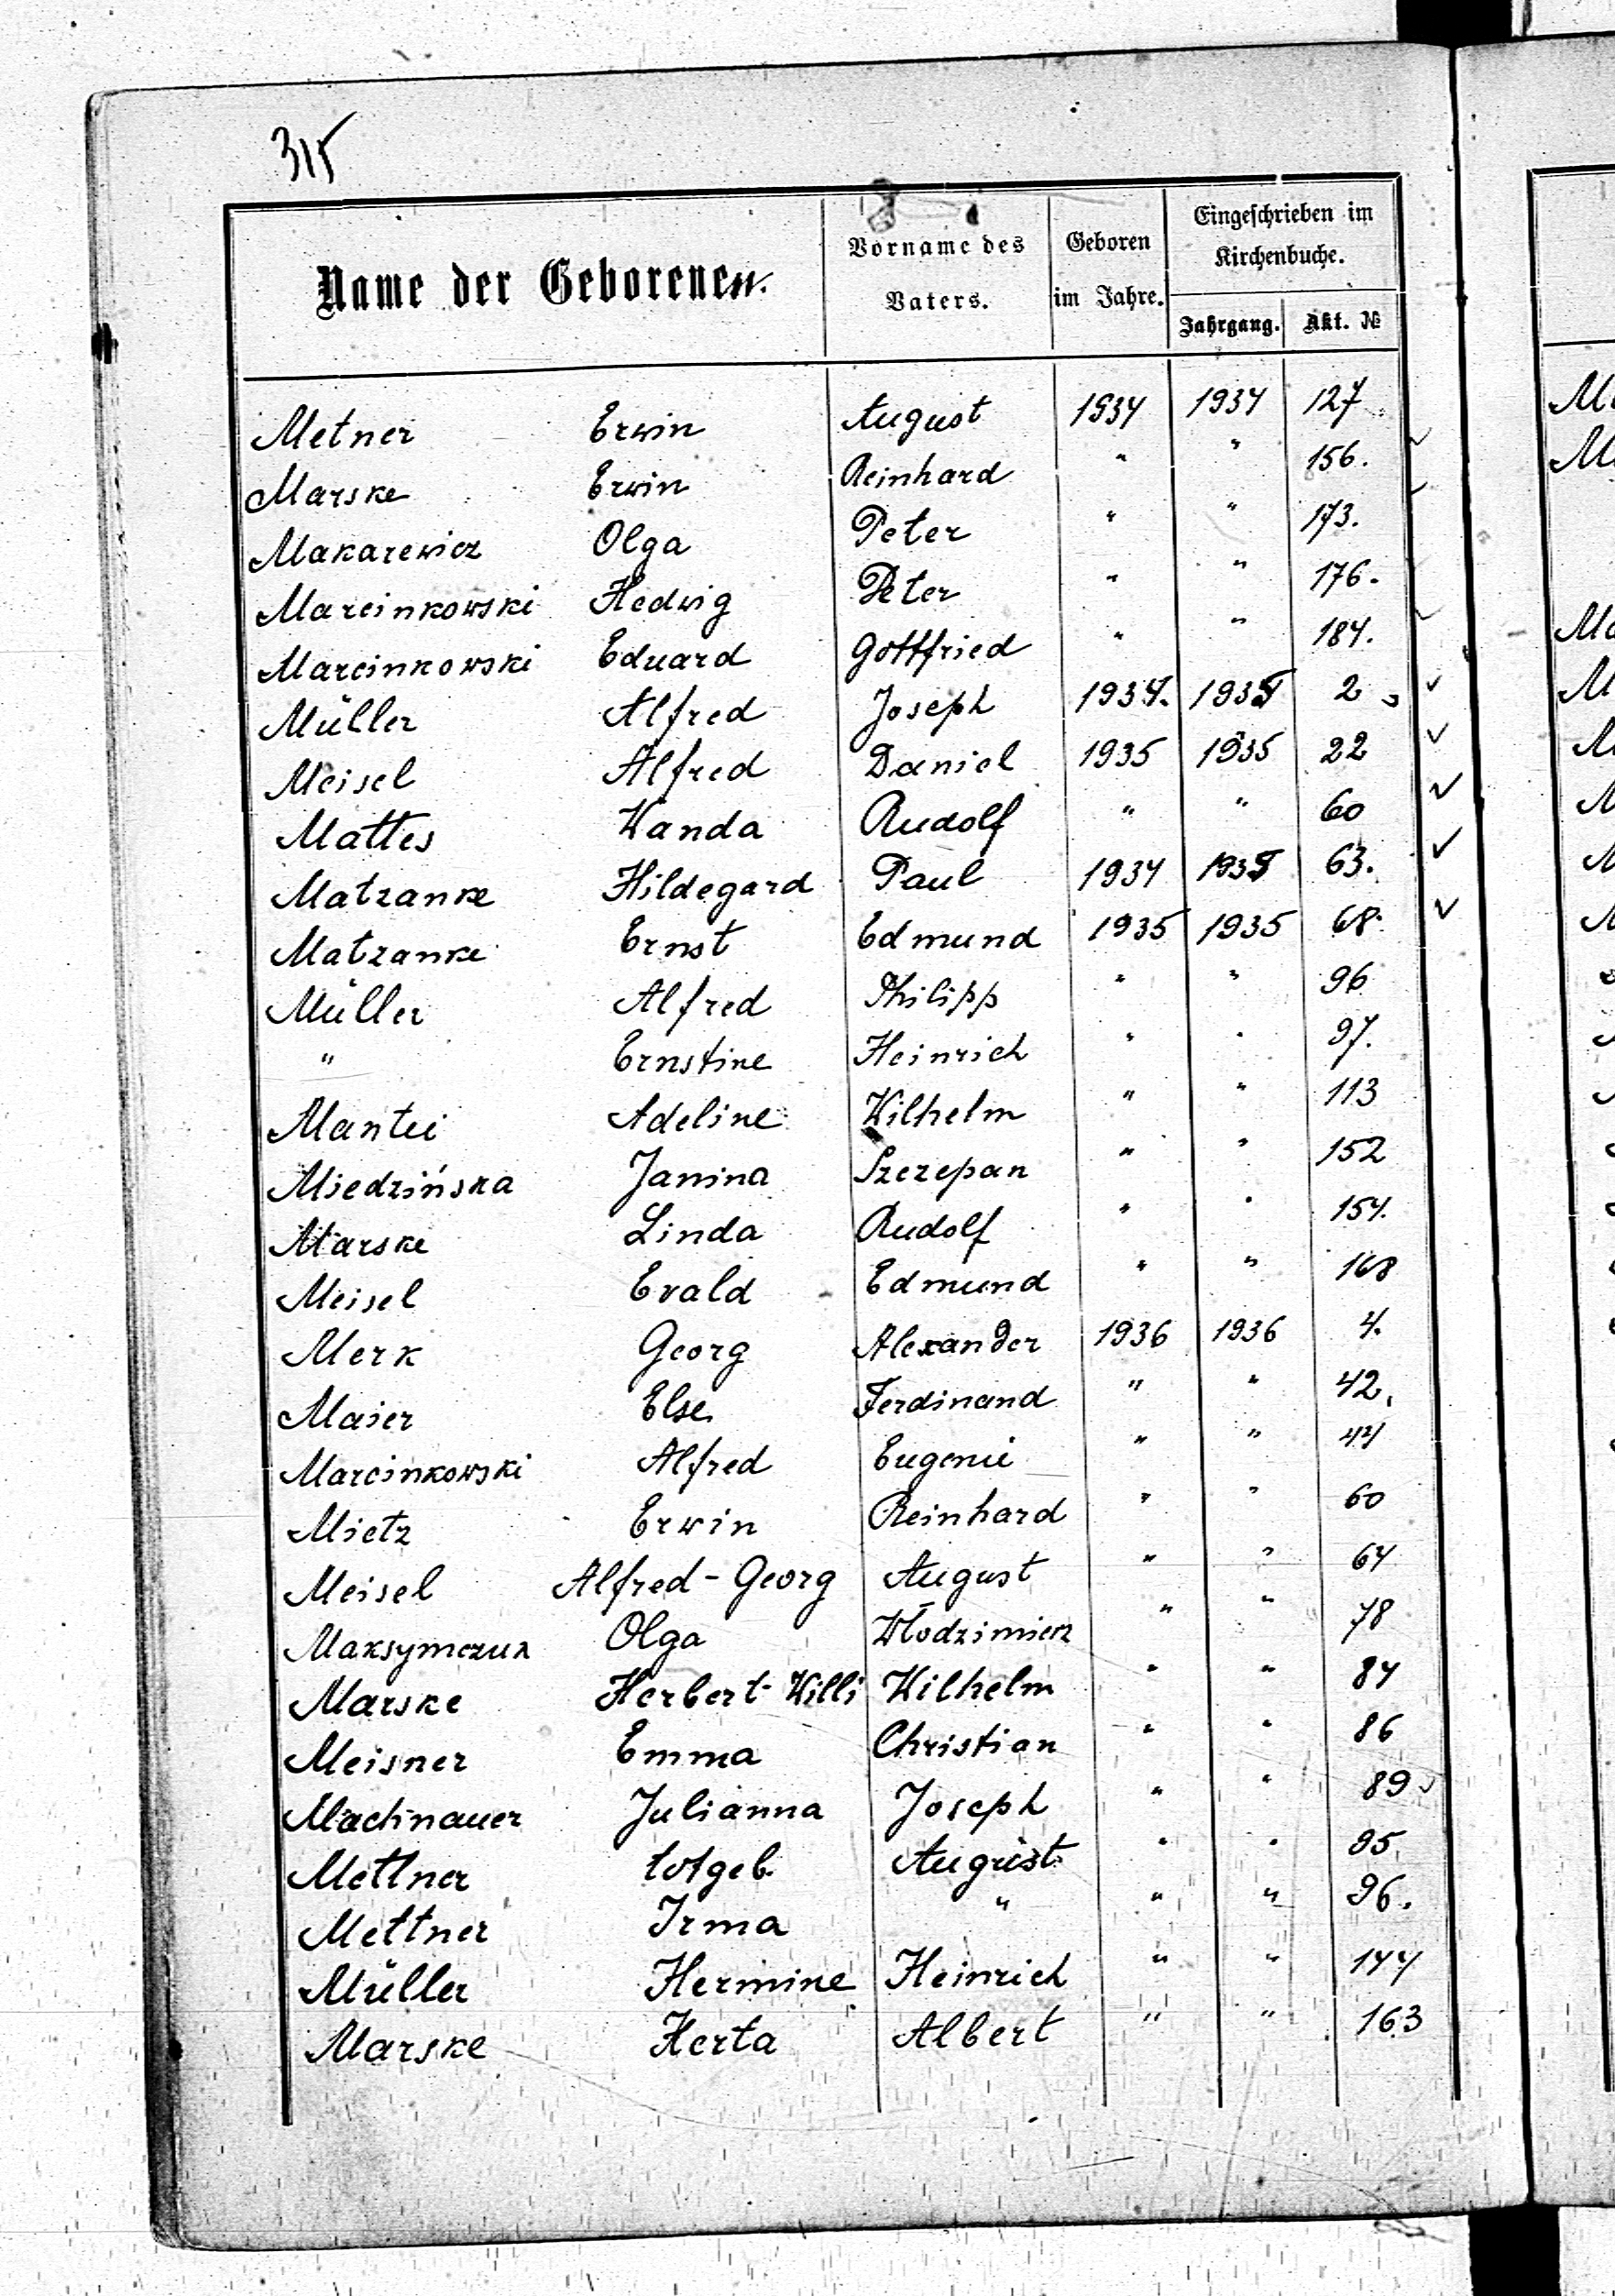 315
Name der Geborenen.
Vorname des Vaters.
Geboren im Jahre.
Eingeschrieben im Kirchenbuche.
Jahrgang. Akt. №
Metner Erwin August 1934 1934 127
Marske Erwin Reinhard " " 156.
Makarewicz Olga Peter " " 173.
Marcinkowski Hedwig Peter " " 176.
Marcinkowski Eduard Gottfried " " 184.
Müller Alfred Joseph 1934. 1935 2
Meisel Alfred Daniel 1935 1935 22
Mattes Wanda Rudolf " " 60
Matzanke Hildegard Paul 1934 1935 63.
Matzanke Ernst Edmund 1935 1935 68.
Müller Alfred Philipp " " 96
" Ernstine Heinrich " " 97.
Mantei Adeline Wilhelm " " 113
Miedzińska Janina Szczepan " " 152
Marske Linda Rudolf " " 154.
Meisel Evald Edmund " " 168
Merk Georg Alexander 1936 1936 4.
Maier Else Ferdinand " " 42.
Marcinkowski Alfred Eugenie " " 44
Mietz Erwin Reinhard " " 60
Meisel Alfred-Georg August " " 64
Maksymczuk Olga Włodzimierz " " 78
Marske Herbert-Willi Wilhelm " " 84
Meisner Emma Christian " " 86
Machnauer Julianna Joseph " " 89
Mettner totgeb. August " " 95
Mettner Irma " " " 96.
Müller Hermine Heinrich " " 144
Marske Herta Albert " " 163